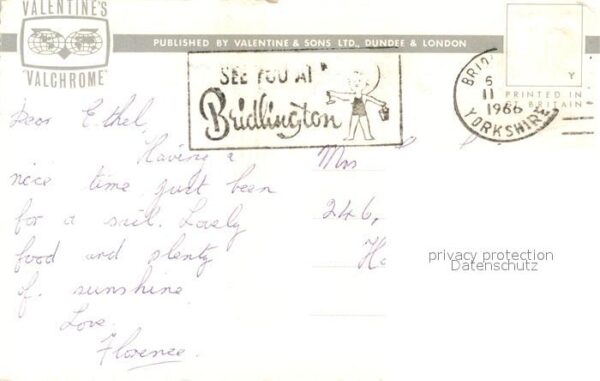 VALENTINE'S
"VALCHROME"
PUBLISHED BY VALENTINE & SONS LTD., DUNDEE & LONDON
SEE YOU AT
Bridlington
BRID
5
11
1966
YORKSHIRE
Y
PRINTED IN
BRITAIN
Dear Ethel,
Having a
nice time just been
for a sail. Lovely
food and plenty
of sunshine
Love
Florence.
Mrs
246,
privacy protection
Datenschutz